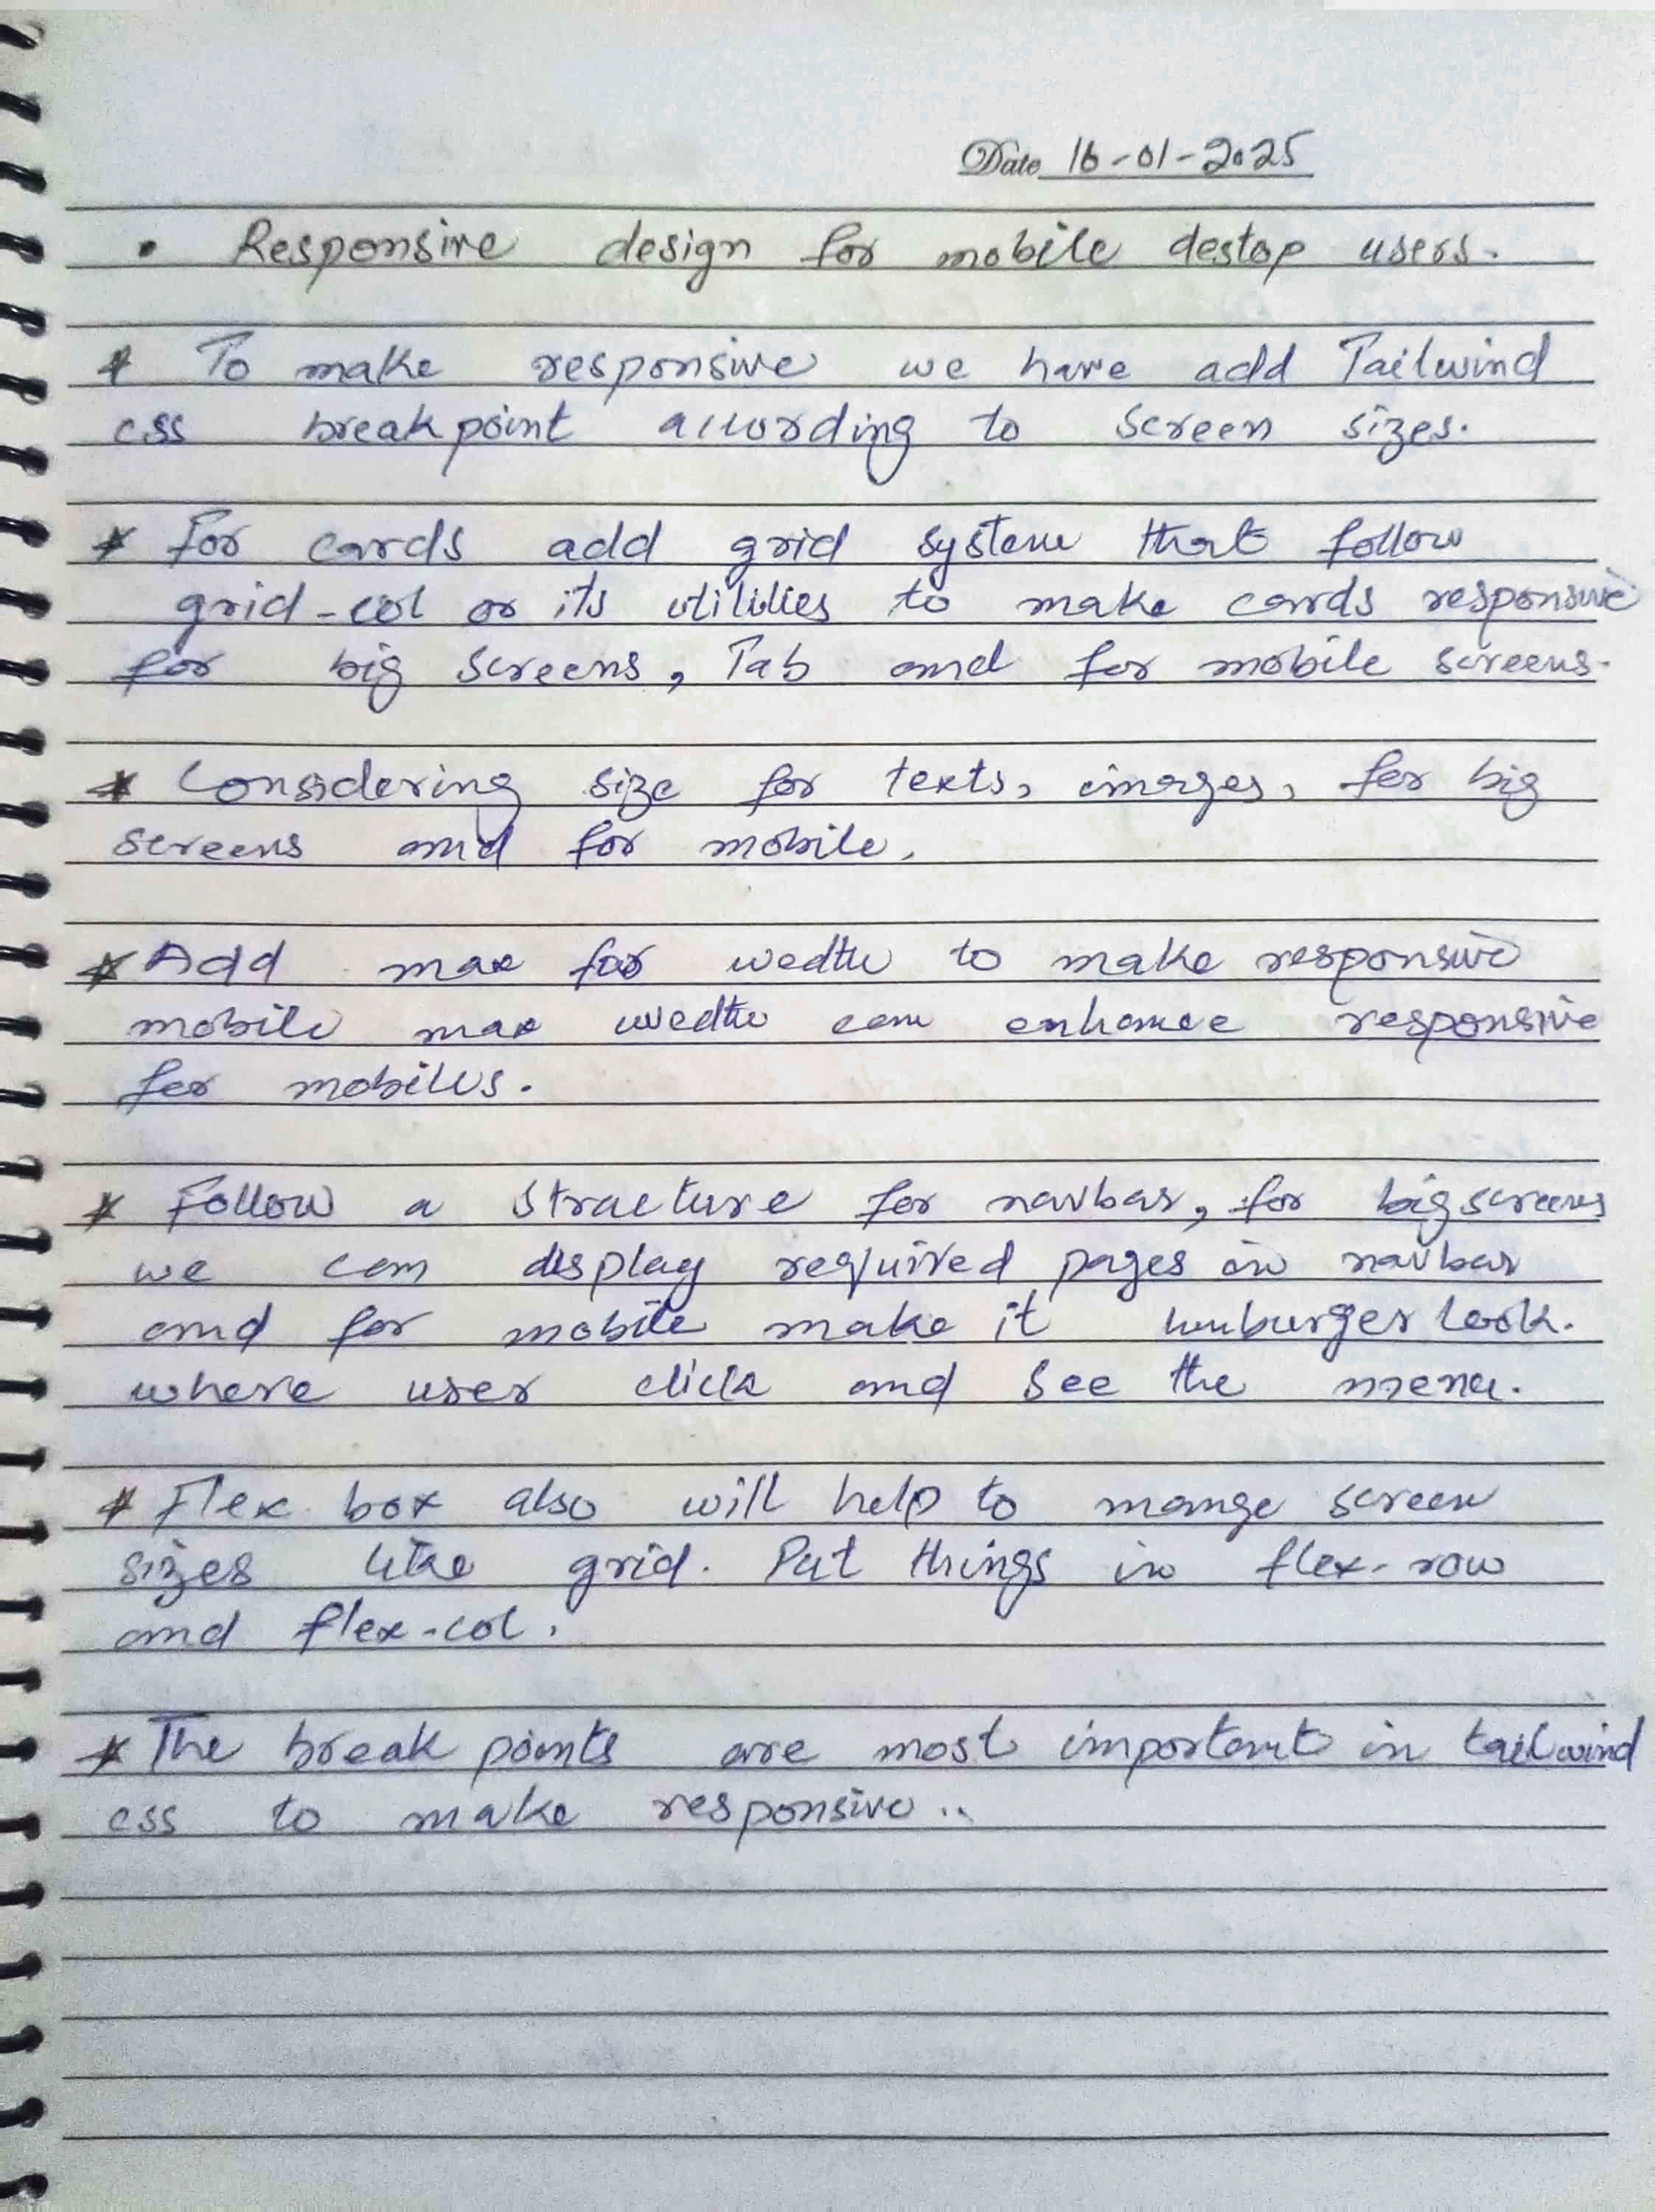 Date 16-01-2025
• Responsive design for mobile destop users.
* To make responsive we have add Tailwind
css breakpoint according to screen sizes.
* For cards add grid system that follow
grid-col or its utilities to make cards responsive
for big screens, Tab and for mobile screens.
* Considering size for texts, images, for big
screens and for mobile.
* Add max for wedth to make responsive
mobile max wedth can enhance responsive
for mobiles.
* Follow a structure for navbar, for big screens
we can display required pages on navbar
and for mobile make it humburger look.
where user click and see the menu.
* Flex box also will help to mange screen
sizes like grid. Put things in flex-row
and flex-col.
* The break points are most important in tailwind
css to make responsive..